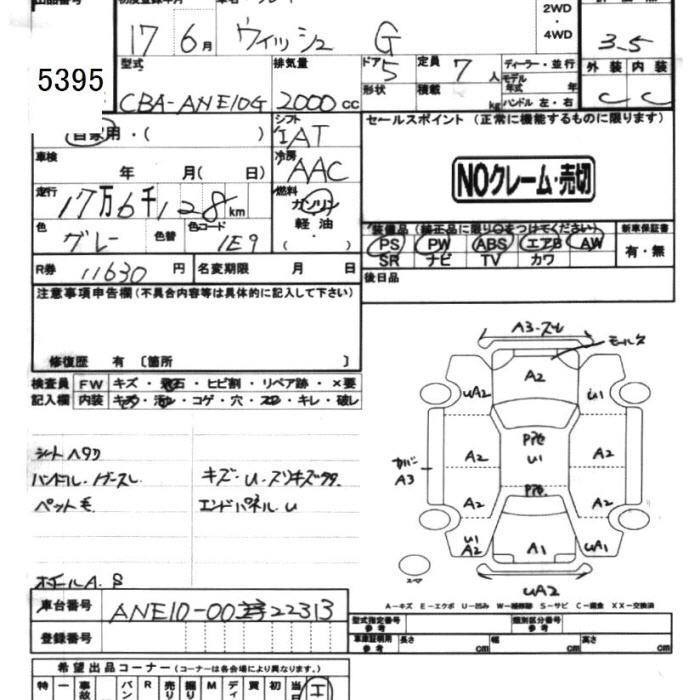 出品番号 初度登録年月 車名・グレード 2WD
17年 6月 ウィッシュ G ・4WD 3.5
型式 排気量 ドア 5 定員 7人 ディーラー・並行 外装 内装
5395 CBA-ANE10G 2000cc 形状 積載 kg モデル年式 年 ハンドル 左・右 C C
自家用・( ) シフト IAT セールスポイント (正常に機能するものに限ります)
車検 年 月( 日) 冷房 AAC
NOクレーム・売切
走行 17万6千128km 燃料 ガソリン
軽油
( ・ )
色 グレー 色替 色コード 1E9 装備品(純正品に限り○をつけてください) 新車保証書
PS PW ABS エアB AW 有・無
SR ナビ TV カワ
R券 11630円 名変期限 月 日 後日品
注意事項申告欄(不具合内容等は具体的に記入して下さい)
修復歴 有 〔箇所 〕
検査員 FW キズ・飛石・ヒビ割・リペア跡・×要
記入欄 内装 キズ・汚れ・コゲ・穴・スレ・キレ・破レ
A3・スレ
モールヌ
A2
uA2 u1
シートヘタリ
ハンドル・ノブスレ キズ・U・スリキズ多タ
ペット毛 エンドパネルU
A2 u1 A2
カバーA3
A2 A2
u1 A2 A1 uA1
ホイールA.S
スペア uA2
A-キズ E-エクボ U-凹み W-補修跡 S-サビ C-腐食 XX-交換済
車台番号 ANE10-0022313
登録番号
型式指定番号 参考 類別区分番号 参考
車庫証明用 参考 長さ cm 幅 cm 高さ cm
希望出品コーナー (コーナーは各会場により異なります。)
特 一 事故 バン R 売り 掘り M ディ 買 初 当日 エ